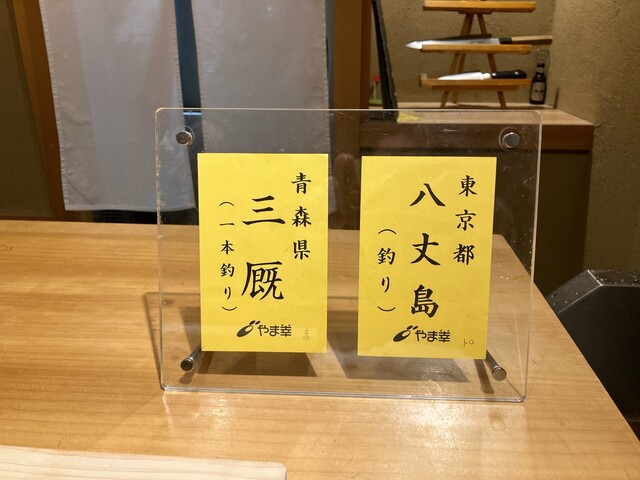 東京都
八丈島
（釣り）
やま幸
トロ
青森県
三厩
（一本釣り）
やま幸
赤